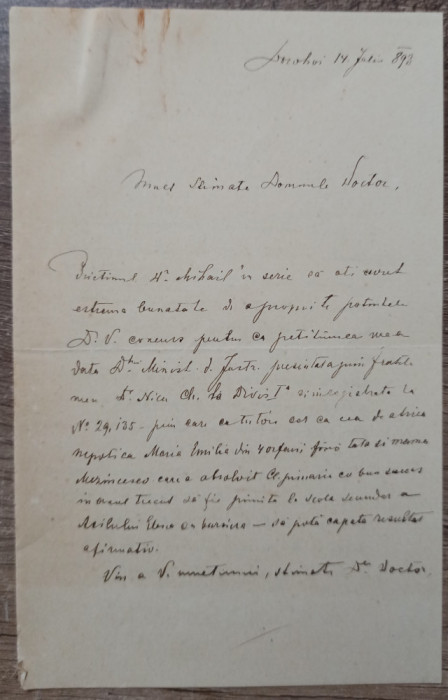 Dorohoi 14 Julie 893
Mult Stimate Domnule Doctor,
Prietinul Dr Mihail in scrie că ati avut
estrema bunatate de a promite potintele
D. V. concurs pentru ca petitiunea mea
data Dlui Minist. d. Instr. presintata prin fratele
meu Dr Nicu Ch. la Divis si inregistrata la
No 29,135 prin care ca tutore cer ca cea de a
nepotica Maria Emilia din 4 orfani fără tata si mama
care a absolvit Cl. primare cu bun succes
in anul trecut să fie primita la scola secundar a
Asilului Elena ca bursiera — să pótă capata resultat
afirmativ.
Vin a V. multumi, stimate Dle Doctor,